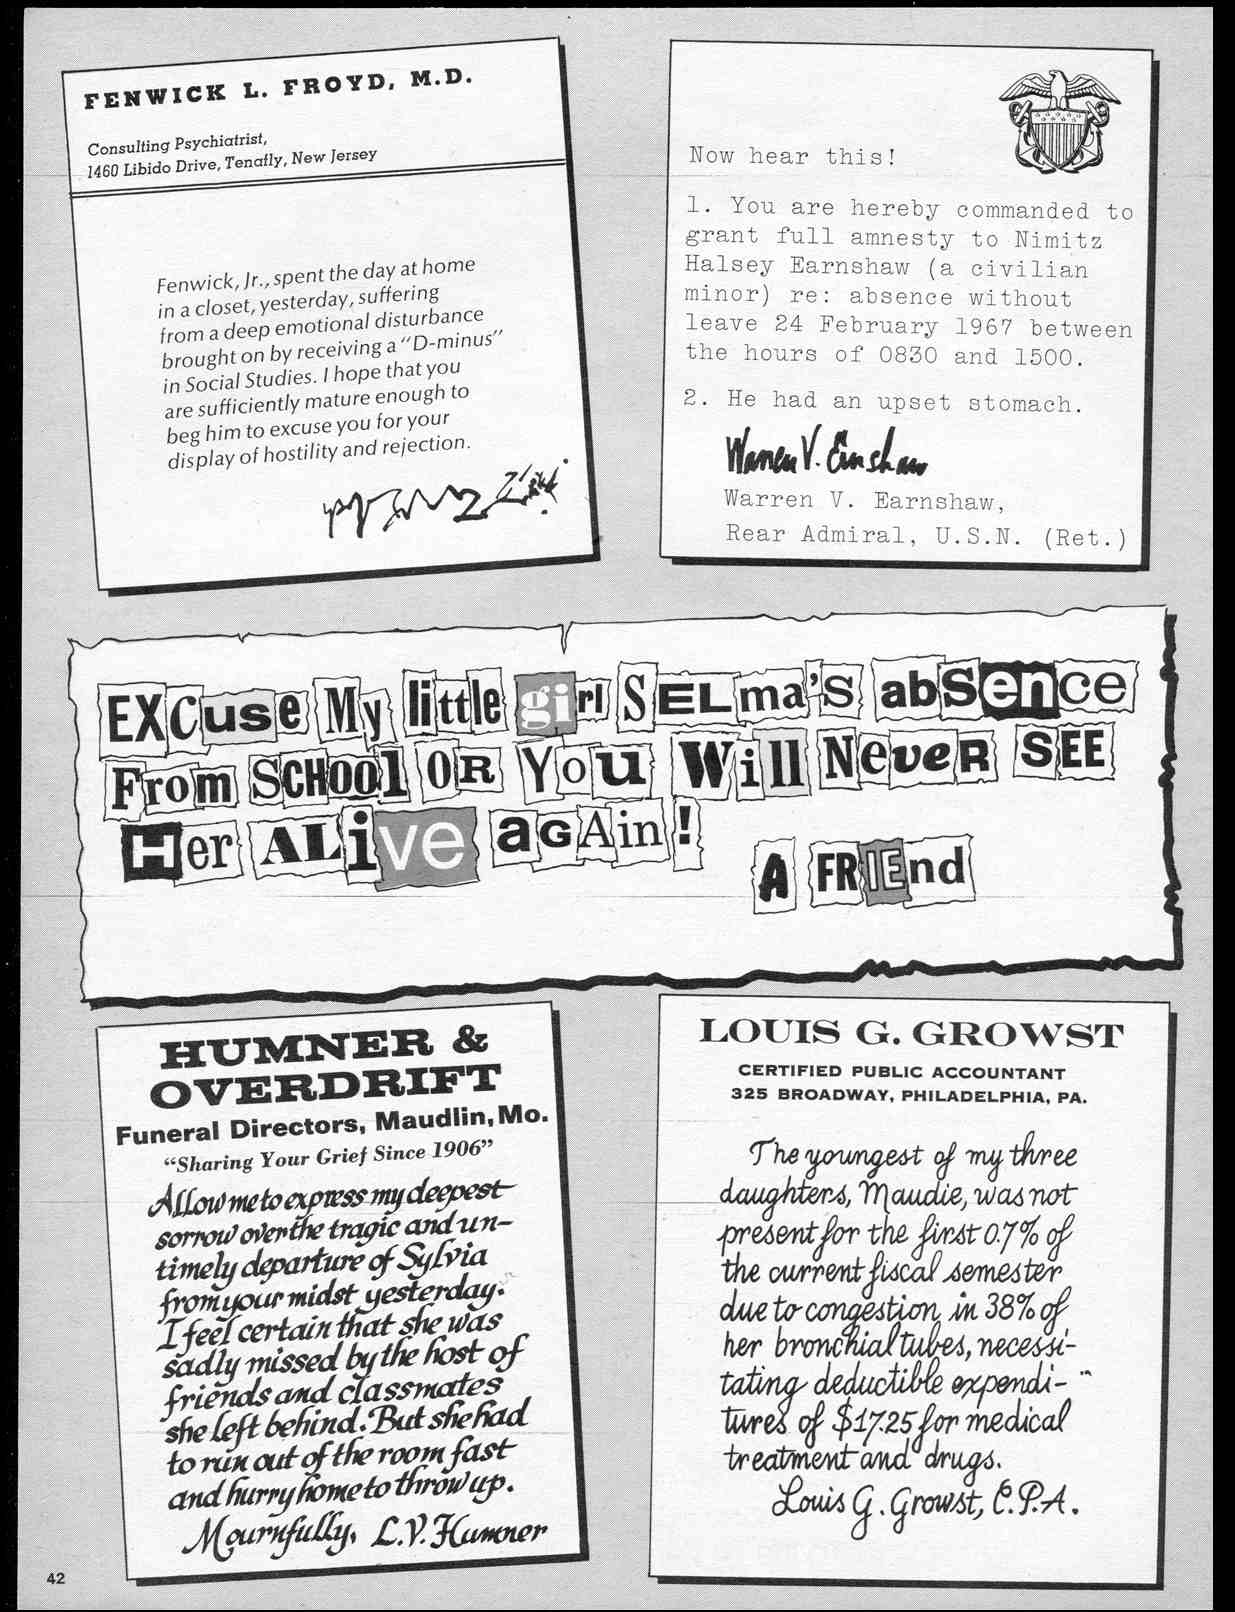 FENWICK L. FROYD, M.D.
Consulting Psychiatrist,
1460 Libido Drive, Tenafly, New Jersey
Fenwick, Jr., spent the day at home
in a closet, yesterday, suffering
from a deep emotional disturbance
brought on by receiving a "D-minus"
in Social Studies. I hope that you
are sufficiently mature enough to
beg him to excuse you for your
display of hostility and rejection.
Now hear this!
1. You are hereby commanded to
grant full amnesty to Nimitz
Halsey Earnshaw (a civilian
minor) re: absence without
leave 24 February 1967 between
the hours of 0830 and 1500.
2. He had an upset stomach.
Warren V. Earnshaw
Warren V. Earnshaw,
Rear Admiral, U.S.N. (Ret.)
EXCuse My little girl SELma's abSence
From SCHOOl OR YOu Will NeveR SEE
Her ALive aGAin!
A FRIEnd
HUMNER &
OVERDRIFT
Funeral Directors, Maudlin, Mo.
"Sharing Your Grief Since 1906"
Allow me to express my deepest
sorrow over the tragic and un-
timely departure of Sylvia
from your midst yesterday.
I feel certain that she was
sadly missed by the host of
friends and classmates
she left behind. But she had
to run out of the room fast
and hurry home to throw up.
Mournfully, L.V. Humner
LOUIS G. GROWST
CERTIFIED PUBLIC ACCOUNTANT
325 BROADWAY, PHILADELPHIA, PA.
The youngest of my three
daughters, Maudie, was not
present for the first 0.7% of
the current fiscal semester
due to congestion in 38% of
her bronchial tubes, necessi-
tating deductible expendi-
tures of $17.25 for medical
treatment and drugs.
Louis G. Growst, C.P.A.
42